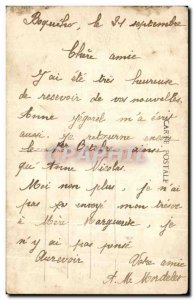 Boqueho, le 21 septembre
Chère amie
J'ai été très heureuse
de recevoir de vos nouvelles.
Anne m'a écrit
aussi. Je retourne encore
le 1er Octobre ainsi
que Anne Nicolas.
Moi non plus, je n'ai
pas envoyé mon
à Mère Marguerite, je
n'y ai pas pensé
Aurevoir Votre amie
A. M.
CARTE POSTALE